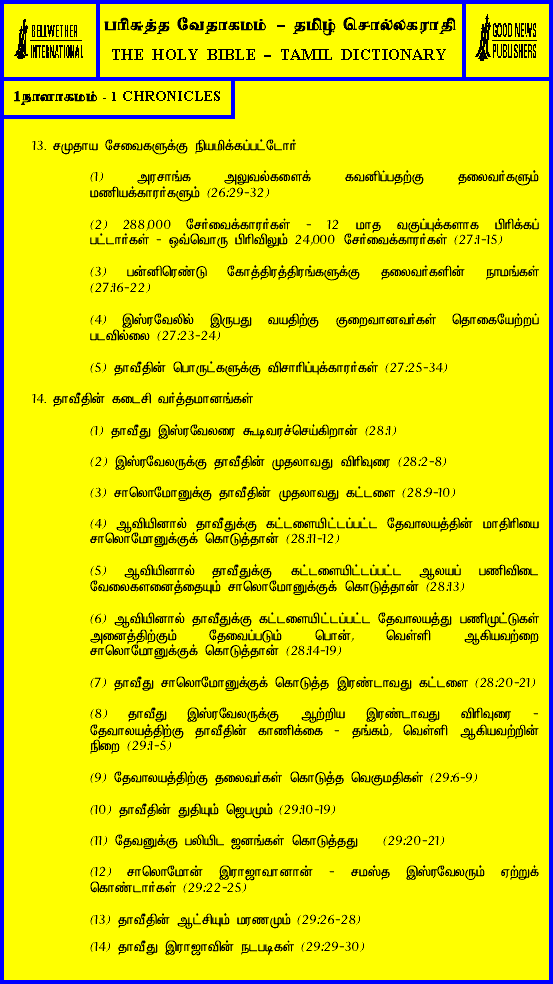 BELLWETHER
INTERNATIONAL
பரிசுத்த வேதாகமம் – தமிழ் சொல்லகராதி
THE HOLY BIBLE – TAMIL DICTIONARY
GOOD NEWS
PUBLISHERS
1நாளாகமம் - 1 CHRONICLES
13. சமுதாய சேவைகளுக்கு நியமிக்கப்பட்டோர்
(1) அரசாங்க அலுவல்களைக் கவனிப்பதற்கு தலைவர்களும்
மணியக்காரர்களும் (26:29-32)
(2) 288,000 சேர்வைக்காரர்கள் - 12 மாத வகுப்புக்களாக பிரிக்கப்
பட்டார்கள் - ஒவ்வொரு பிரிவிலும் 24,000 சேர்வைக்காரர்கள் (27:1-15)
(3) பன்னிரெண்டு கோத்திரத்திரங்களுக்கு தலைவர்களின் நாமங்கள்
(27:16-22)
(4) இஸ்ரவேலில் இருபது வயதிற்கு குறைவானவர்கள் தொகையேற்றப்
படவில்லை (27:23-24)
(5) தாவீதின் பொருட்களுக்கு விசாரிப்புக்காரர்கள் (27:25-34)
14. தாவீதின் கடைசி வர்த்தமானங்கள்
(1) தாவீது இஸ்ரவேலரை கூடிவரச்செய்கிறான் (28:1)
(2) இஸ்ரவேலருக்கு தாவீதின் முதலாவது விரிவுரை (28:2-8)
(3) சாலொமோனுக்கு தாவீதின் முதலாவது கட்டளை (28:9-10)
(4) ஆவியினால் தாவீதுக்கு கட்டளையிட்டப்பட்ட தேவாலயத்தின் மாதிரியை
சாலொமோனுக்குக் கொடுத்தான் (28:11-12)
(5) ஆவியினால் தாவீதுக்கு கட்டளையிட்டப்பட்ட ஆலயப் பணிவிடை
வேலைகளனைத்தையும் சாலொமோனுக்குக் கொடுத்தான் (28:13)
(6) ஆவியினால் தாவீதுக்கு கட்டளையிட்டப்பட்ட தேவாலயத்து பணிமுட்டுகள்
அனைத்திற்கும் தேவைப்படும் பொன், வெள்ளி ஆகியவற்றை
சாலொமோனுக்குக் கொடுத்தான் (28:14-19)
(7) தாவீது சாலொமோனுக்குக் கொடுத்த இரண்டாவது கட்டளை (28:20-21)
(8) தாவீது இஸ்ரவேலருக்கு ஆற்றிய இரண்டாவது விரிவுரை -
தேவாலயத்திற்கு தாவீதின் காணிக்கை - தங்கம், வெள்ளி ஆகியவற்றின்
நிறை (29:1-5)
(9) தேவாலயத்திற்கு தலைவர்கள் கொடுத்த வெகுமதிகள் (29:6-9)
(10) தாவீதின் துதியும் ஜெபமும் (29:10-19)
(11) தேவனுக்கு பலியிட ஜனங்கள் கொடுத்தது (29:20-21)
(12) சாலொமோன் இராஜாவானான் - சமஸ்த இஸ்ரவேலரும் ஏற்றுக்
கொண்டார்கள் (29:22-25)
(13) தாவீதின் ஆட்சியும் மரணமும் (29:26-28)
(14) தாவீது இராஜாவின் நடபடிகள் (29:29-30)